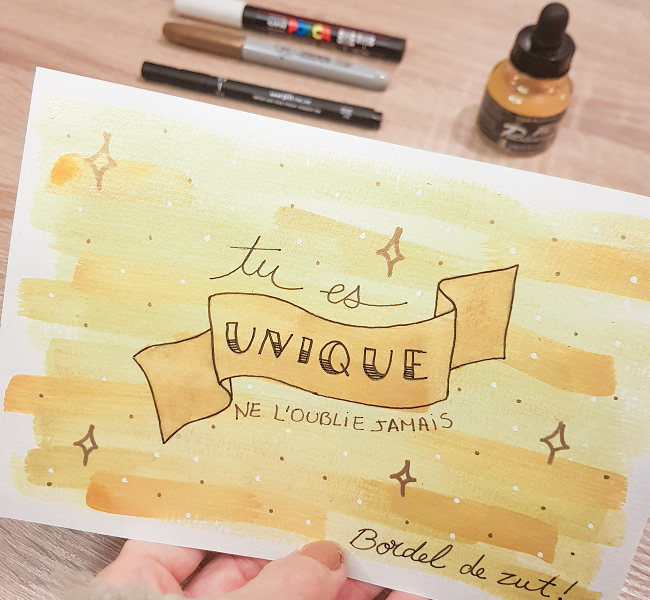 tu es
UNIQUE
NE L'OUBLIE JAMAIS
Bordel de zut!